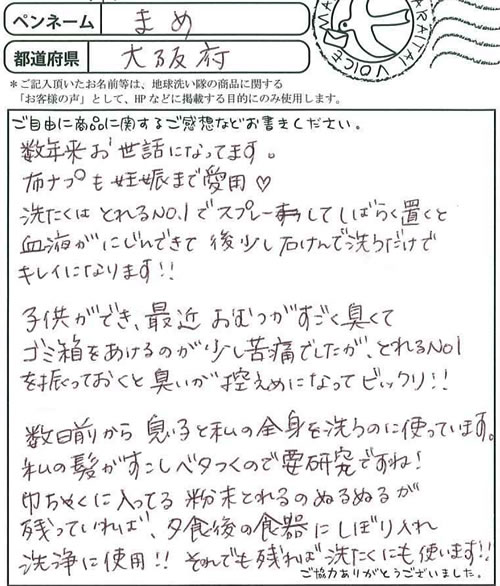 ペンネーム まめ
都道府県 大阪府
ARAITAI VOICE MA
＊ご記入頂いたお名前等は、地球洗い隊の商品に関する
「お客様の声」として、HPなどに掲載する目的にのみ使用します。
ご自由に商品に関するご感想などお書きください。
数年来お世話になってます。
布ナプも妊娠まで愛用♡
洗たくは とれるNO.1でスプレーしてしばらく置くと
血液がにじんできて 後少し石けんで洗うだけで
キレイになります!!
子供ができ、最近 おむつがすごく臭くて
ゴミ箱をあけるのが少し苦痛でしたが、とれるNo1
を振っておくと臭いが控えめになってビックリ!!
数日前から 息子と私の全身を洗うのに使っています。
私の髪がすこしベタつくので要研究ですね!
巾ちゃくに入ってる 粉末とれるのぬるぬるが
残っていれば、夕食後の食器にしぼり入れ
洗浄に使用!! それでも残れば洗たくにも使います!!
ご協力ありがとうございました。